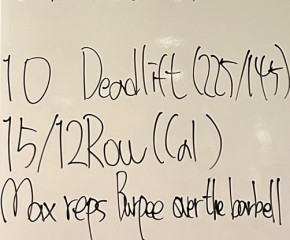 10 Deadlift (225/145)
15/12 Row (Cal)
Max reps Burpee over the barbell